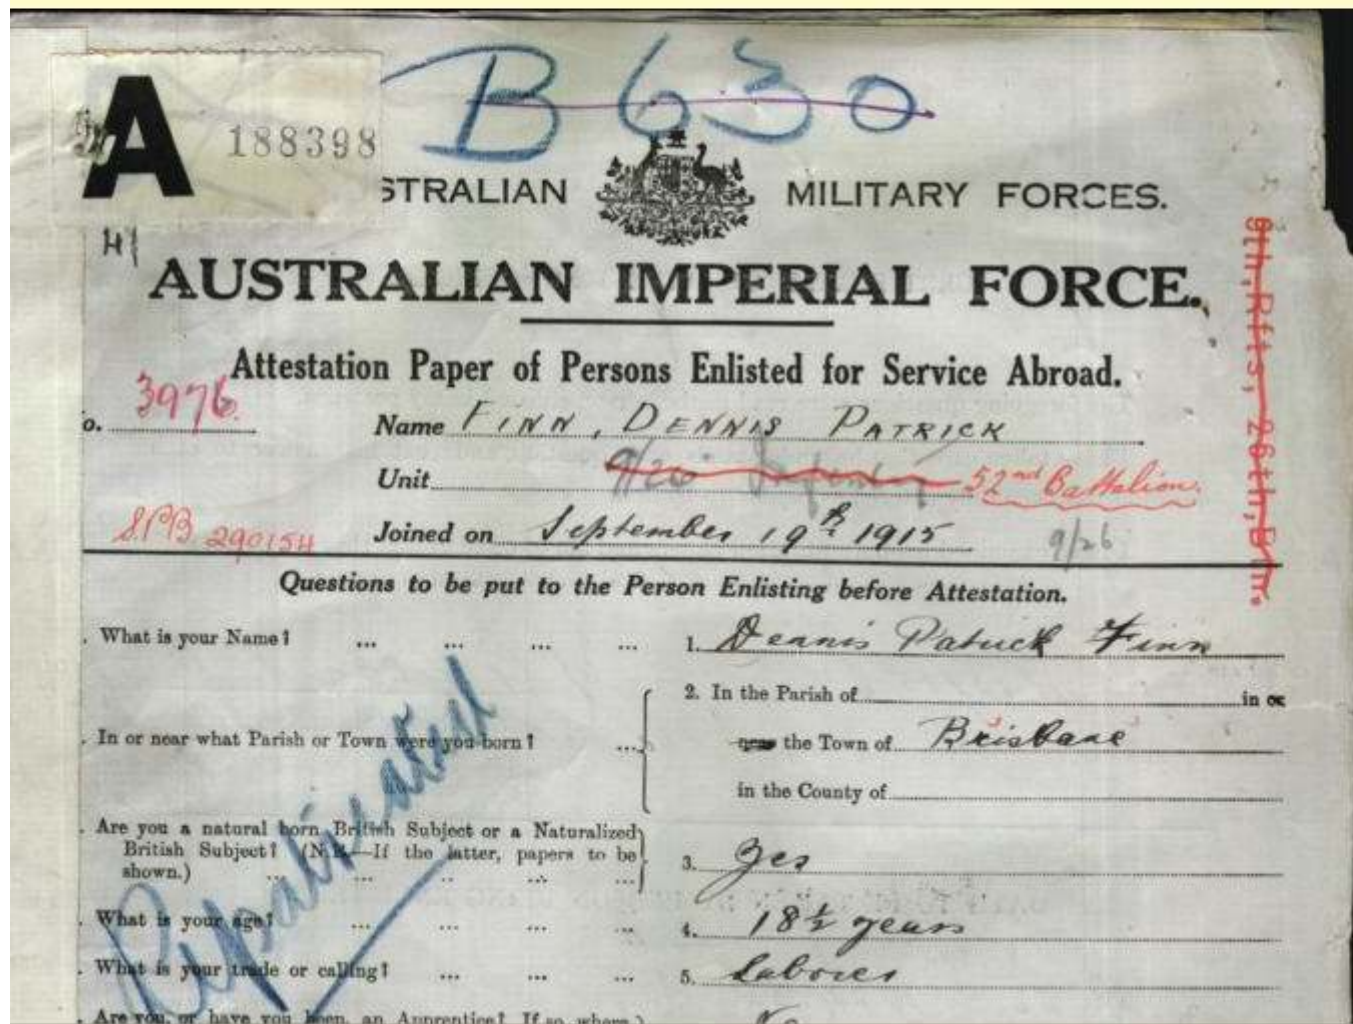 B 630
A 188398
STRALIAN MILITARY FORCES.
H1
AUSTRALIAN IMPERIAL FORCE.
9th, Rfts, 26th, Btn.
Attestation Paper of Persons Enlisted for Service Abroad.
o. 3976.
Name FINN, DENNIS PATRICK
Unit 9/26 Infantry 52nd Battalion.
S.P.B 290154
Joined on September 19th 1915
9/26
Questions to be put to the Person Enlisting before Attestation.
. What is your Name? ... ... ... ... 1. Dennis Patrick Finn
. In or near what Parish or Town were you born? ...
2. In the Parish of in or
near the Town of Brisbane
in the County of
. Are you a natural born British Subject or a Naturalized
British Subject? (N.B.—If the latter, papers to be
shown.) ... ... ... ... ... 3. Yes
. What is your age? ... ... ... ... 4. 18½ years
. What is your trade or calling? ... ... ... 5. Laborer
Repatriated
. Are you, or have you been, an Apprentice? If so, where? No